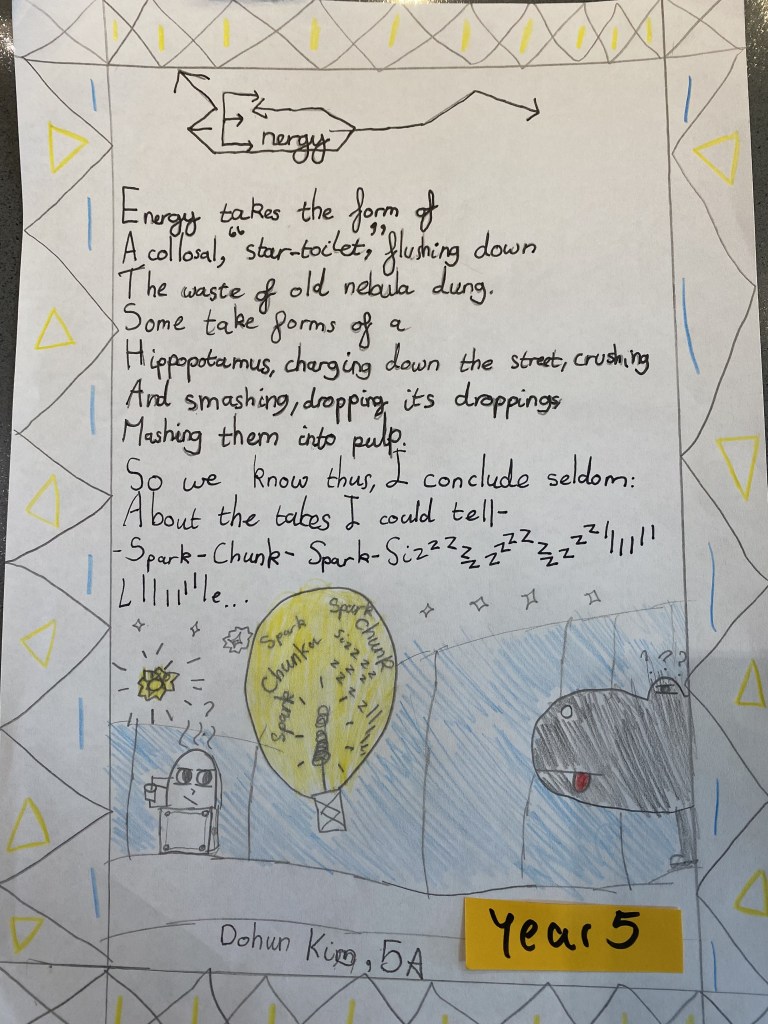 Energy
Energy takes the form of
A collosal, "star-toilet," flushing down
The waste of old nebula dung.
Some take forms of a
Hippopotamus, charging down the street, crushing
And smashing, dropping its droppings
Mashing them into pulp.
So we know thus, I conclude seldom:
About the takes I could tell-
-Spark-Chunk-Spark-Sizzzzzzzzzzzzzllllllll
Lllllllle...
Spark
Chunk
Spark
Spark
Chunk
Sizzzzzzzzzllllll
?
? ? ?
Dohun Kim, 5A
Year 5